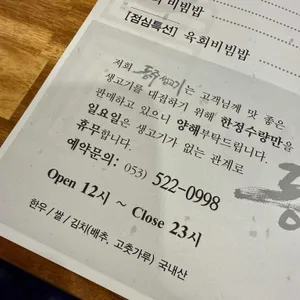 회 비빔밥
[점심특선] 육회비빔밥
저희 뭉주생고기는 고객님께 맛 좋은
생고기를 대접하기 위해 한정수량만을
판매하고 있으니 양해부탁드립니다.
일요일은 생고기가 없는 관계로
휴무합니다.
예약문의: 053) 522-0998
Open 12시 ~ Close 23시
한우/쌀/김치(배추, 고춧가루) 국내산